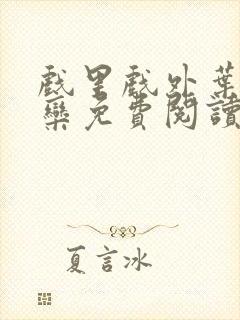 戲里戲外葉
欒免費閱讀
夏言冰